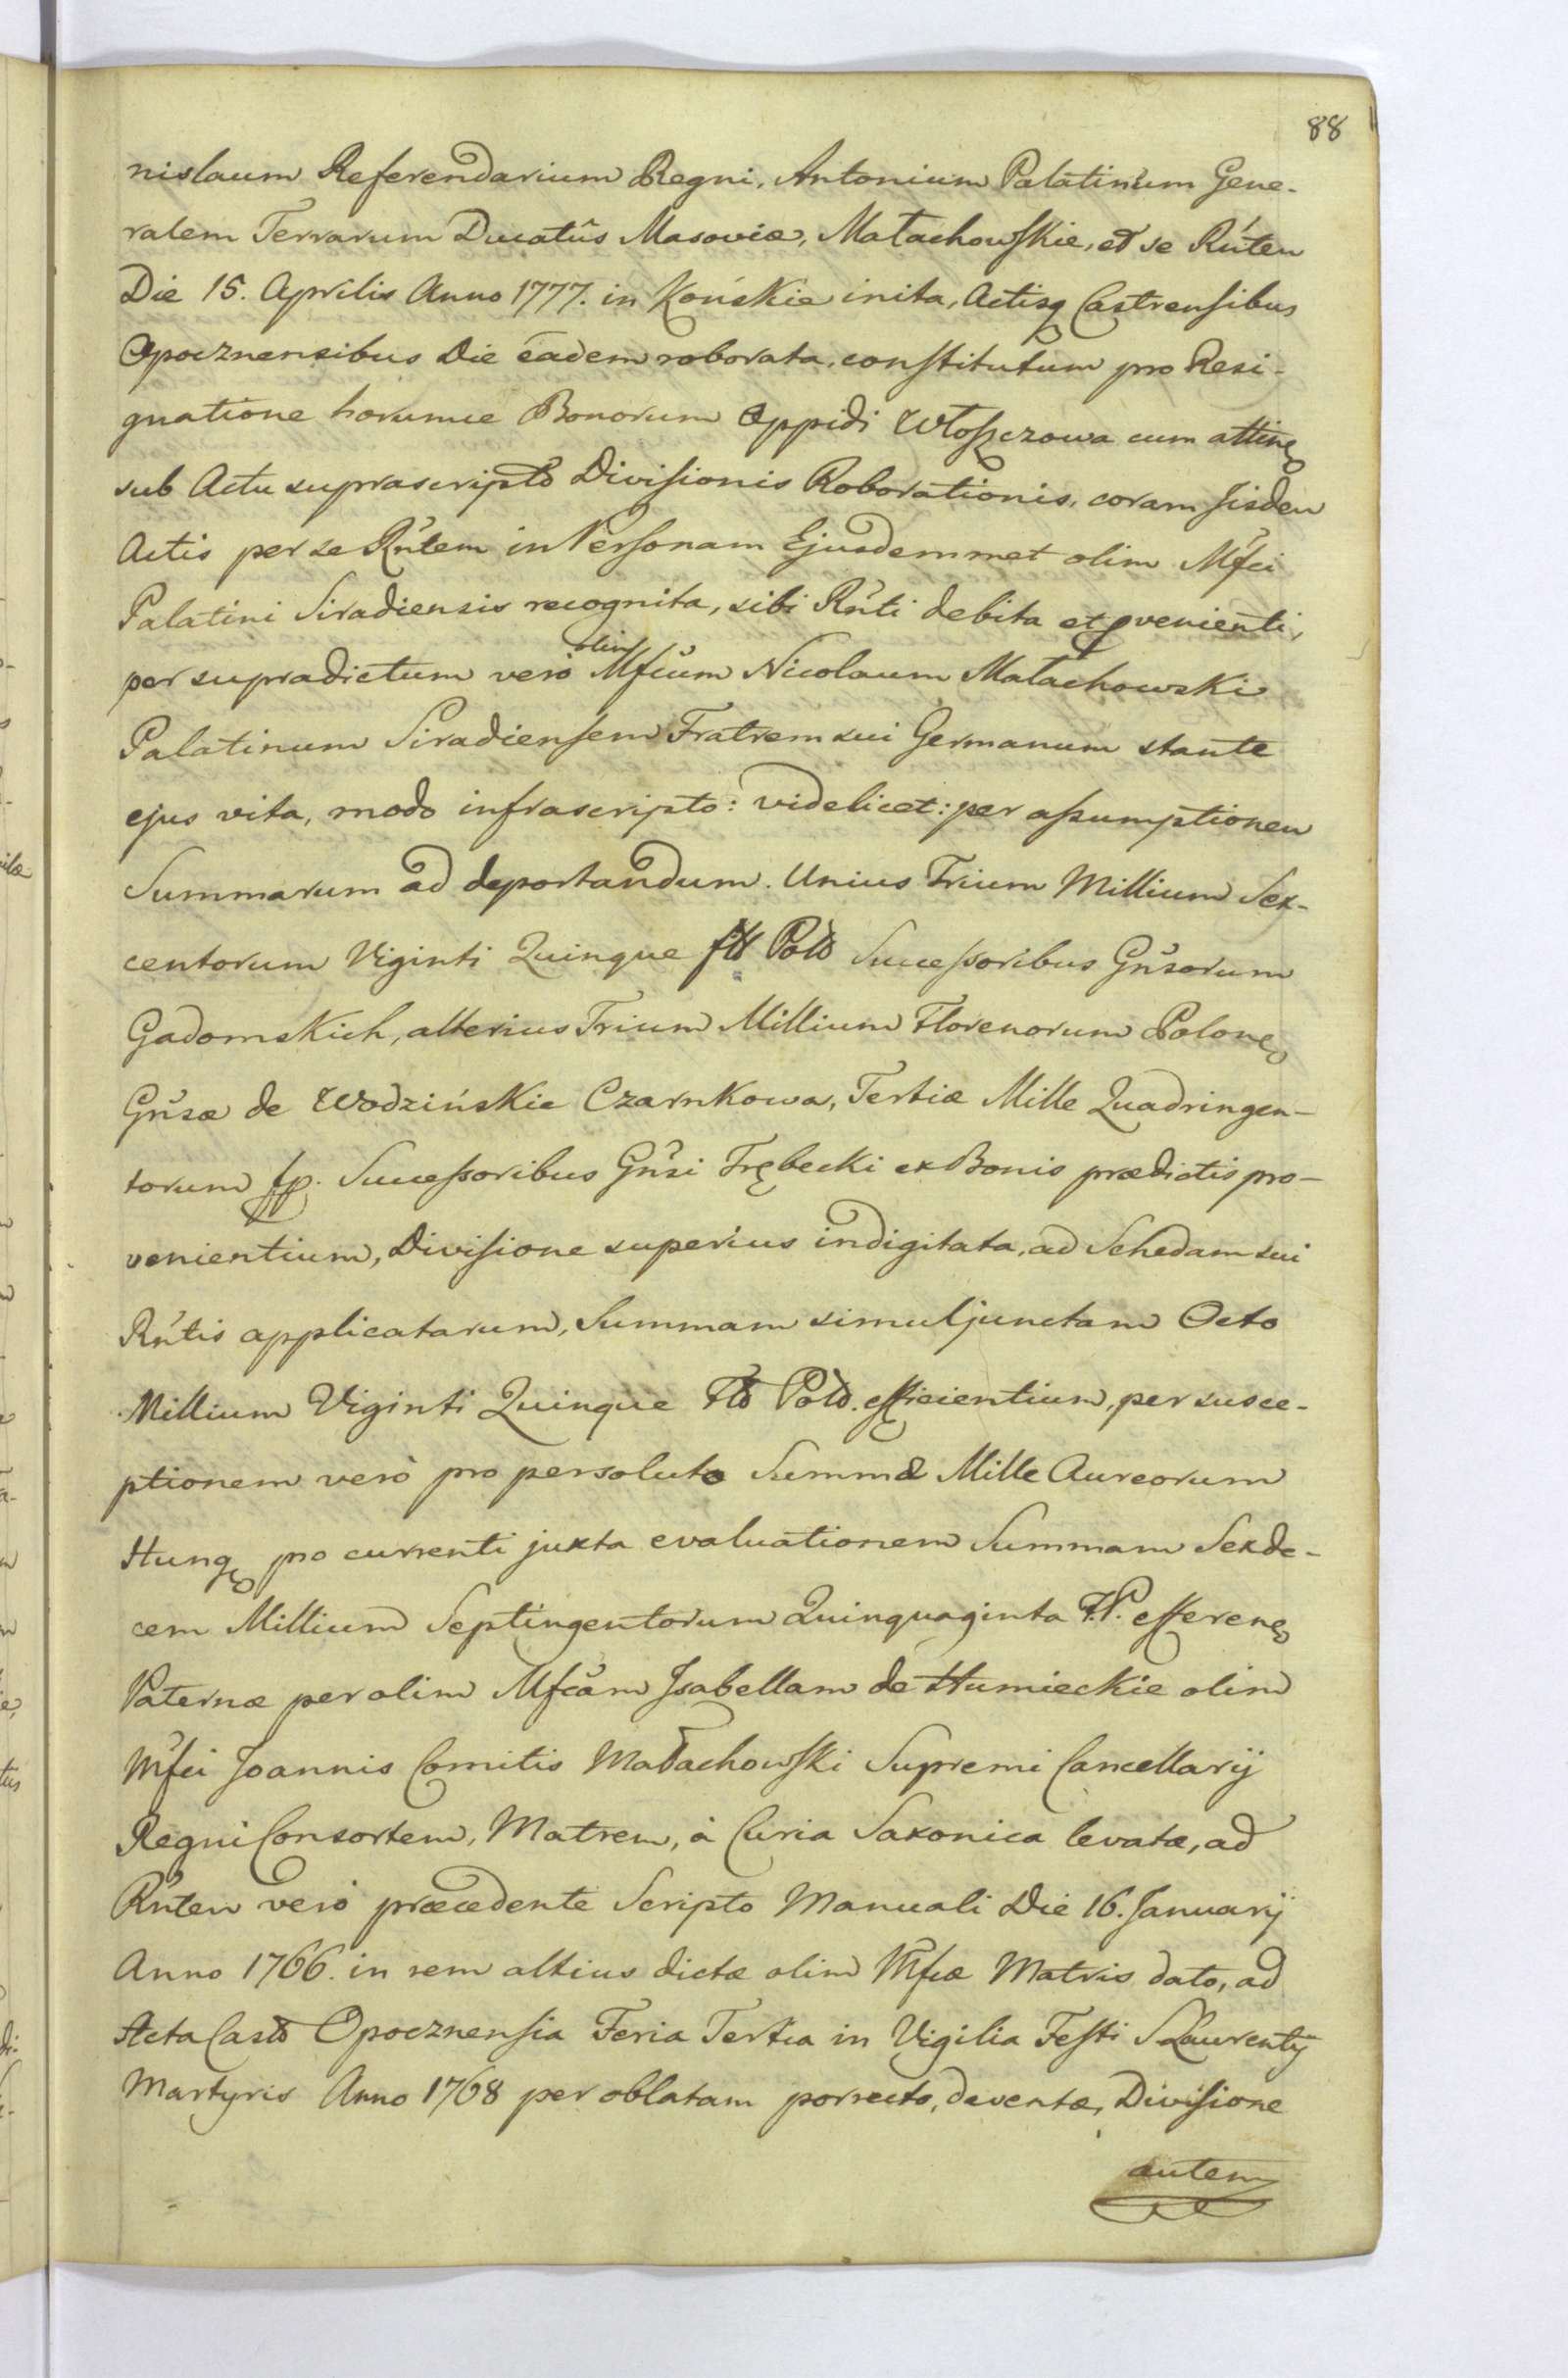 88
nislaum Referendarium Regni, Antonium Palatinum Gene-
ralem Terrarum Ducatûs Masoviæ, Małachowskie, et se Rńtem
Die 15. Aprilis Anno 1777. in Końskie inita, Actisq Castrensibus
Opocznensibus Die eâdem roborata, constitutum pro Resi-
gnatione horumce Bonorum Oppidi Włoszczowa cum attinen
sub Actu suprascriptæ Divisionis Roborationis, coram iisdem
Actis per se Rńtem in Personam Ejusdemmet olim Mfci
Palatini Siradiensis recognita, sibi Rńti debita et pvenienti,
per supradictum verò olim Mfcum Nicolaum Małachowski
Palatinum Siradiensem Fratrem sui Germanum stante
ejus vita, modo infrascripto: videlicet: per assumptionem
Summarum ad deportandum. Unius Trium Millium Sex-
centorum Viginti Quinque flo Polo Successoribus Gńsorum
Gadomskich, alterius Trium Millium Florenorum Polone
Gńsæ de Wodzińskie Czarnkowa, Tertiæ Mille Quadringen-
torum fp. Successoribus Gńsi Trębecki ex Bonis prædictis pro-
venientium, Divisione superius indigitata, ad Schedam sui
Rńtis applicatarum, Summam simul junctam Octo
Millium Viginti Quinque Flo Polo. efficientium, per susce-
ptionem verò pro persoluta Summæ Mille Aureorum
Hung pro currenti juxta evaluationem Summam Sexde-
cem Millium Septingentorum Quinquaginta F.P. efferen
Paternæ per olim Mfcam Isabellam de Humieckie olim
Mfci Joannis Comitis Małachowski Supremi Cancellarij
Regni Consortem, Matrem, à Curia Saxonica levatæ, ad
Rńtem verò præcedente Scripto Manuali Die 16. Januarij
Anno 1766. in rem altius dictæ olim Mfcæ Matris dato, ad
Acta Casto Opocznensia Feria Tertia in Vigilia Festi S Laurentij
Martyris Anno 1768 per oblatam porrecto, deventæ, Divisione
autem